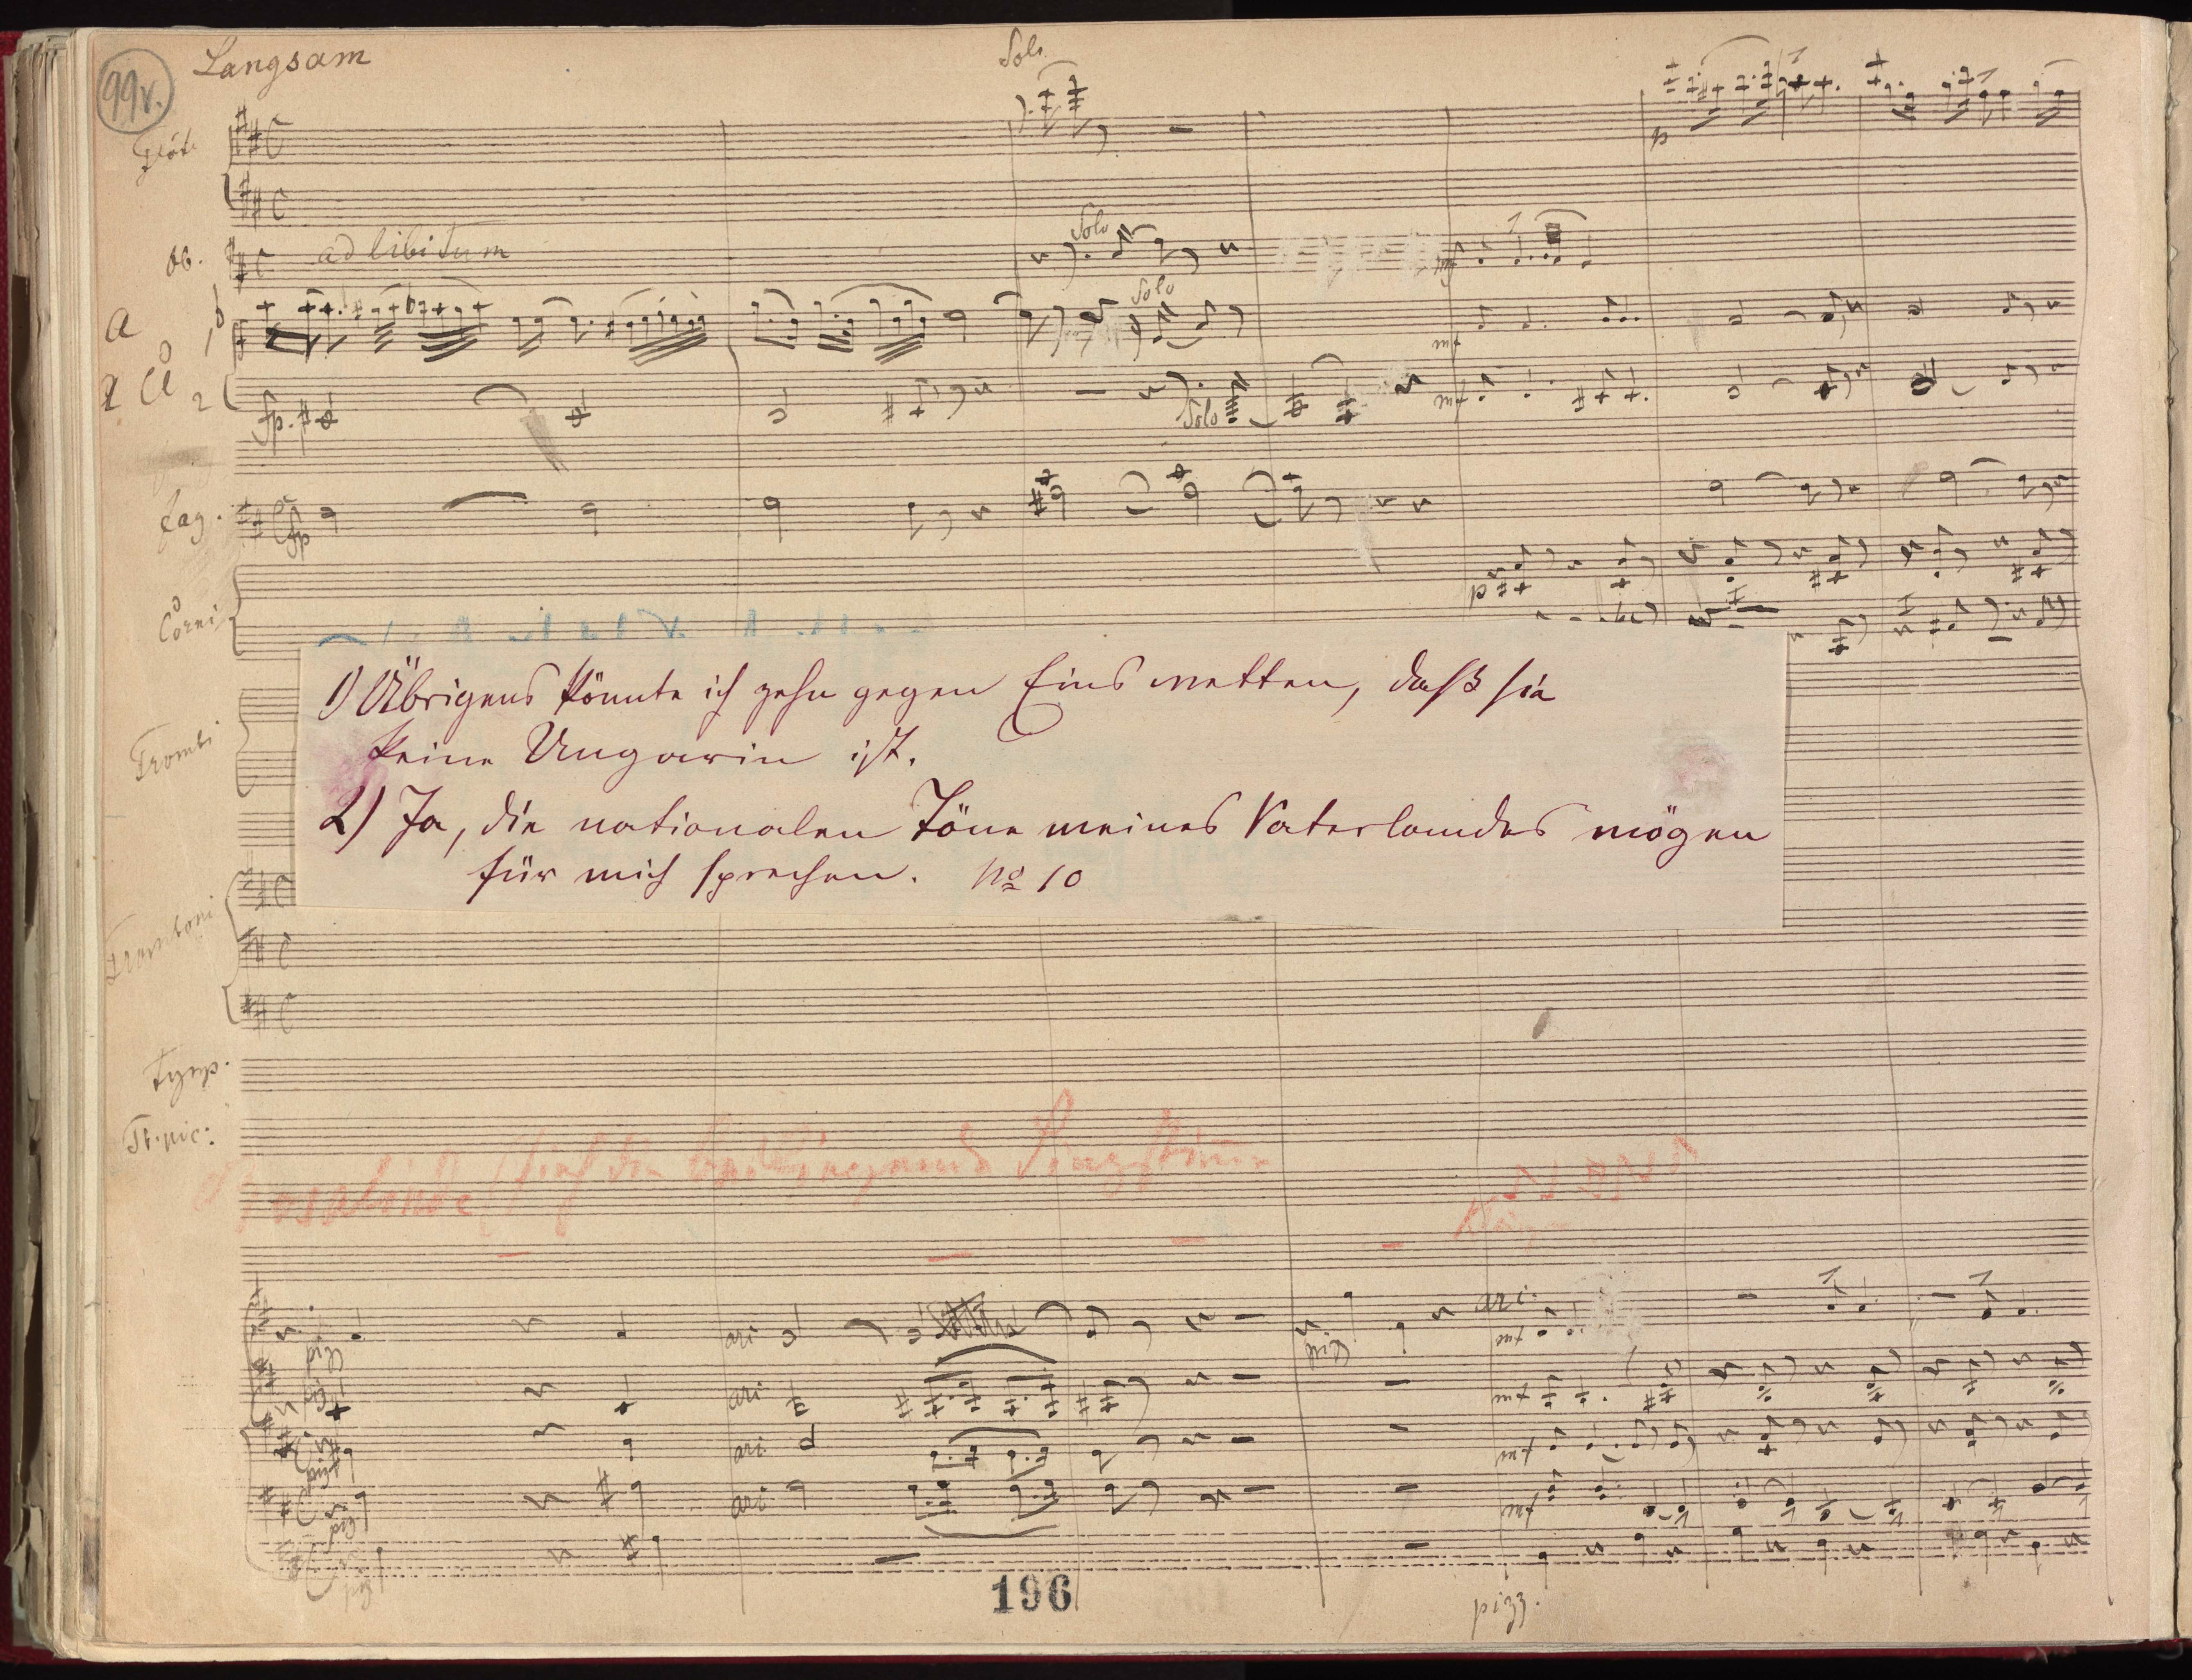 99v.
Langsam
Solo
Flöte
p
Ob.
ad libitum
Solo
mf
a
Solo
mf
2 Cl
1
2
fp.
Solo
mf
Fag.
fp
Corni
p
1) Übrigens könnte ich zehn gegen Eins wetten, daß sie
keine Ungarin ist.
Trombi
2) Ja, die nationalen Töne meines Vaterlandes mögen
für mich sprechen. No 10
Tromboni
Tymp.
Tb. pic:
Rosalinde
pizz
arc
pizz
arc.
mf
pizz
arc
mf
pizz
arc
mf
pizz
arc
mf
pizz
pizz.
196